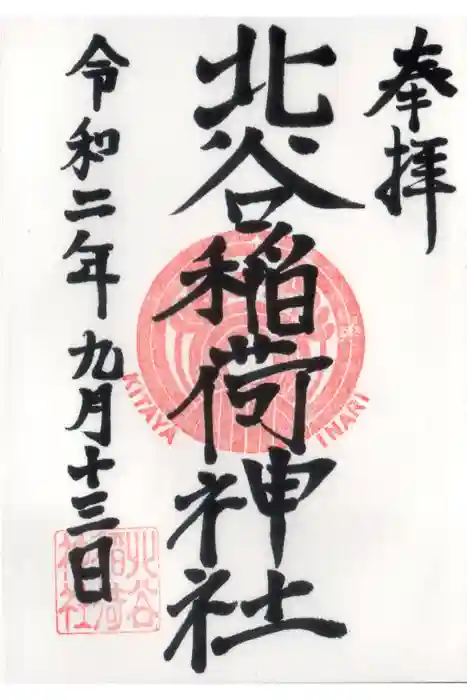 奉拝
北谷稲荷神社
令和二年九月十三日
KITAYA INARI
北谷
稲荷
神社